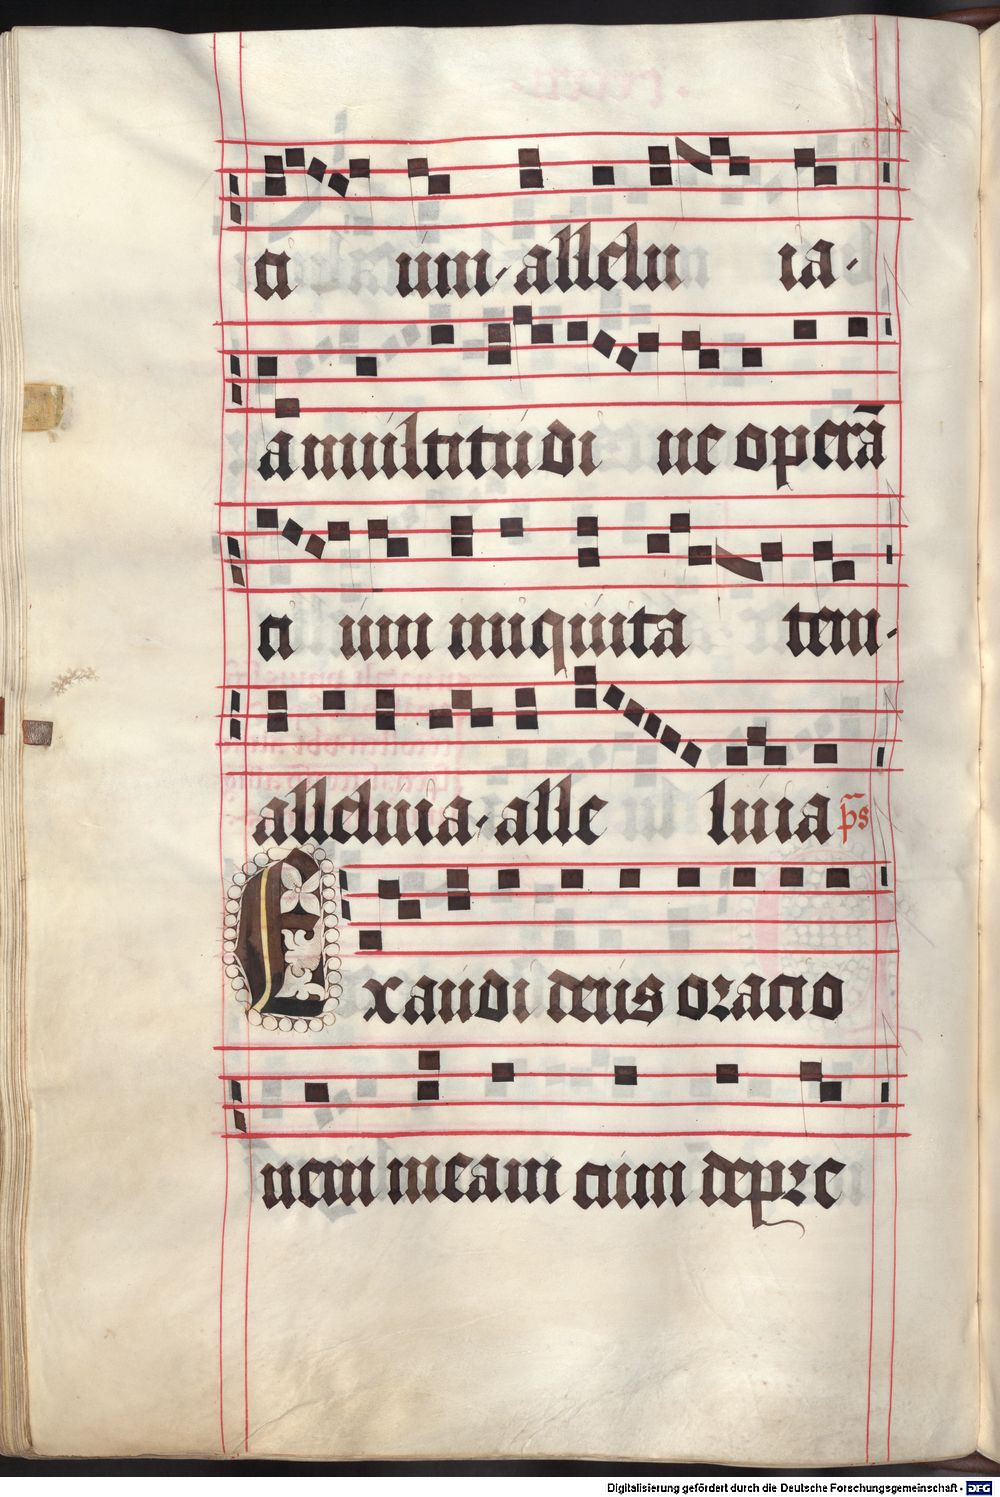 ci um · allelu ia ·
a multitudi ne operā
ci um iniquita tem ·
alleluia · alle luia p̄s
Exaudi deus oracio
nem meam cum depre
Digitalisierung gefördert durch die Deutsche Forschungsgemeinschaft - DFG